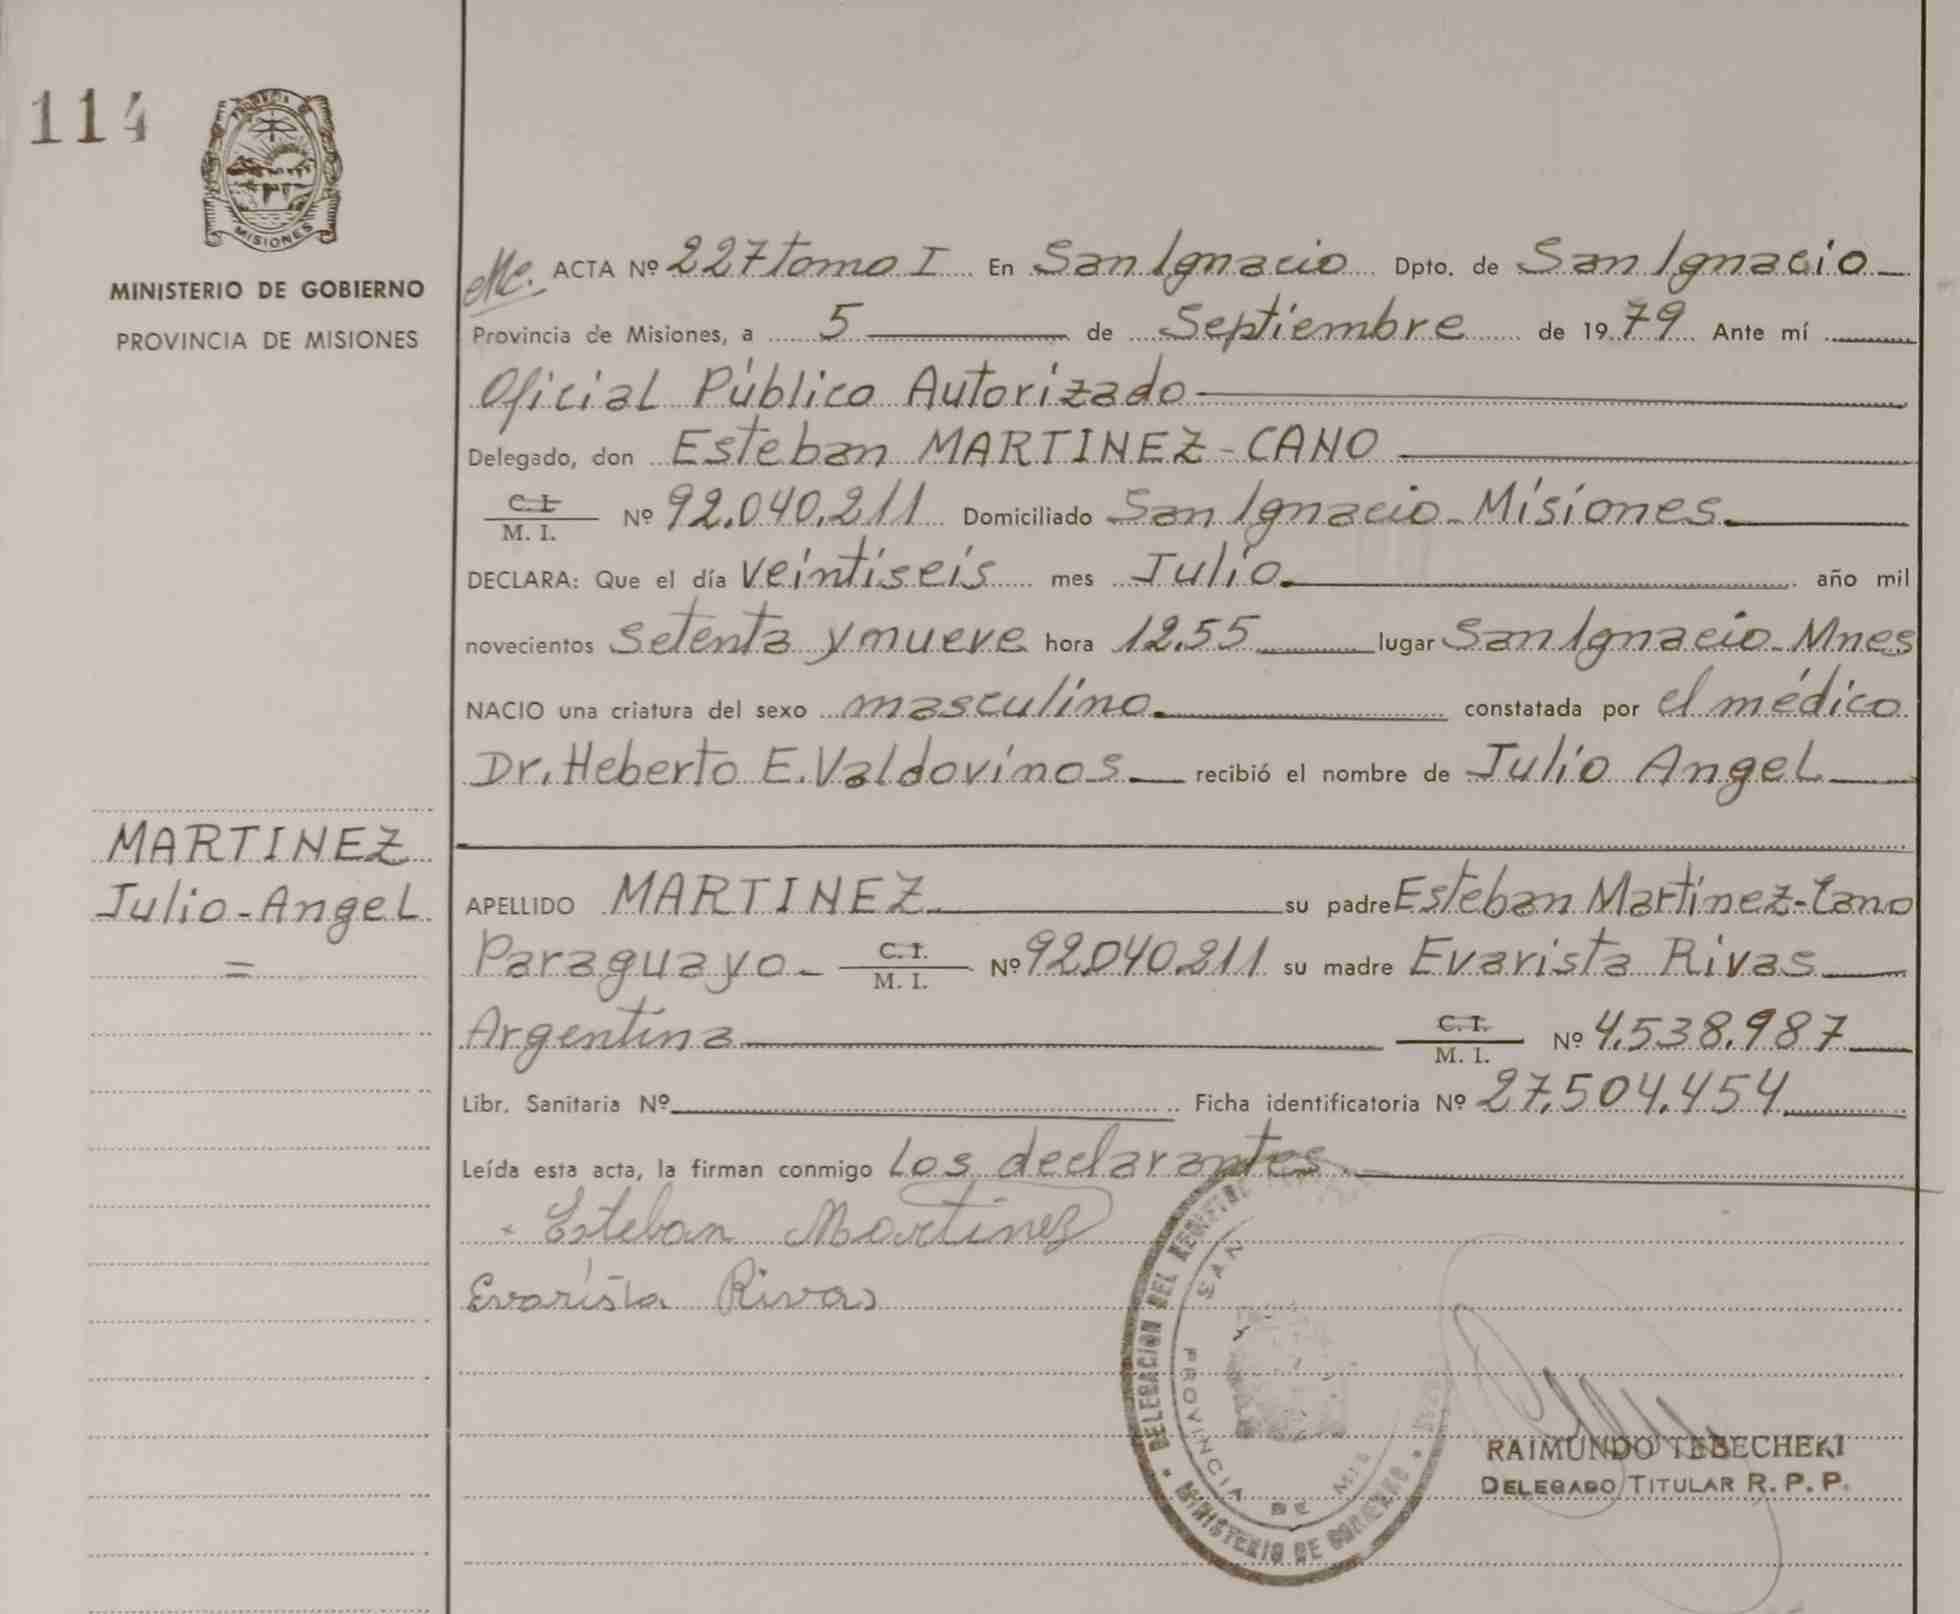 114
PROVINCIA DE
MISIONES
MINISTERIO DE GOBIERNO
PROVINCIA DE MISIONES
MARTINEZ
Julio-Angel
=
ACTA Nº 227 tomo I En San Ignacio Dpto. de San Ignacio
Provincia de Misiones, a 5 de Septiembre de 1979 Ante mí
Oficial Público Autorizado
Delegado, don Esteban MARTINEZ-CANO
C.I.
M. I. Nº 92.040.211 Domiciliado San Ignacio-Misiones
DECLARA: Que el día veintiseis mes Julio año mil
novecientos setenta y nueve hora 12.55 lugar San Ignacio-Mnes
NACIO una criatura del sexo masculino constatada por el médico
Dr. Heberto E. Valdovinos recibió el nombre de Julio Angel
APELLIDO MARTINEZ su padre Esteban Martinez-Cano
Paraguayo- C.I. M. I. Nº 92.040.211 su madre Evarista Rivas
Argentina C.I. M. I. Nº 4.538.987
Libr. Sanitaria Nº Ficha identificatoria Nº 27.504.454
Leída esta acta, la firman conmigo los declarantes
Esteban Martinez
Evarista Rivas
DELEGACION DEL
SAN
PROVINCIA DE MIS
MINISTERIO DE GOBIERNO
RAIMUNDO TEBECHEKI
DELEGADO TITULAR R. P. P.